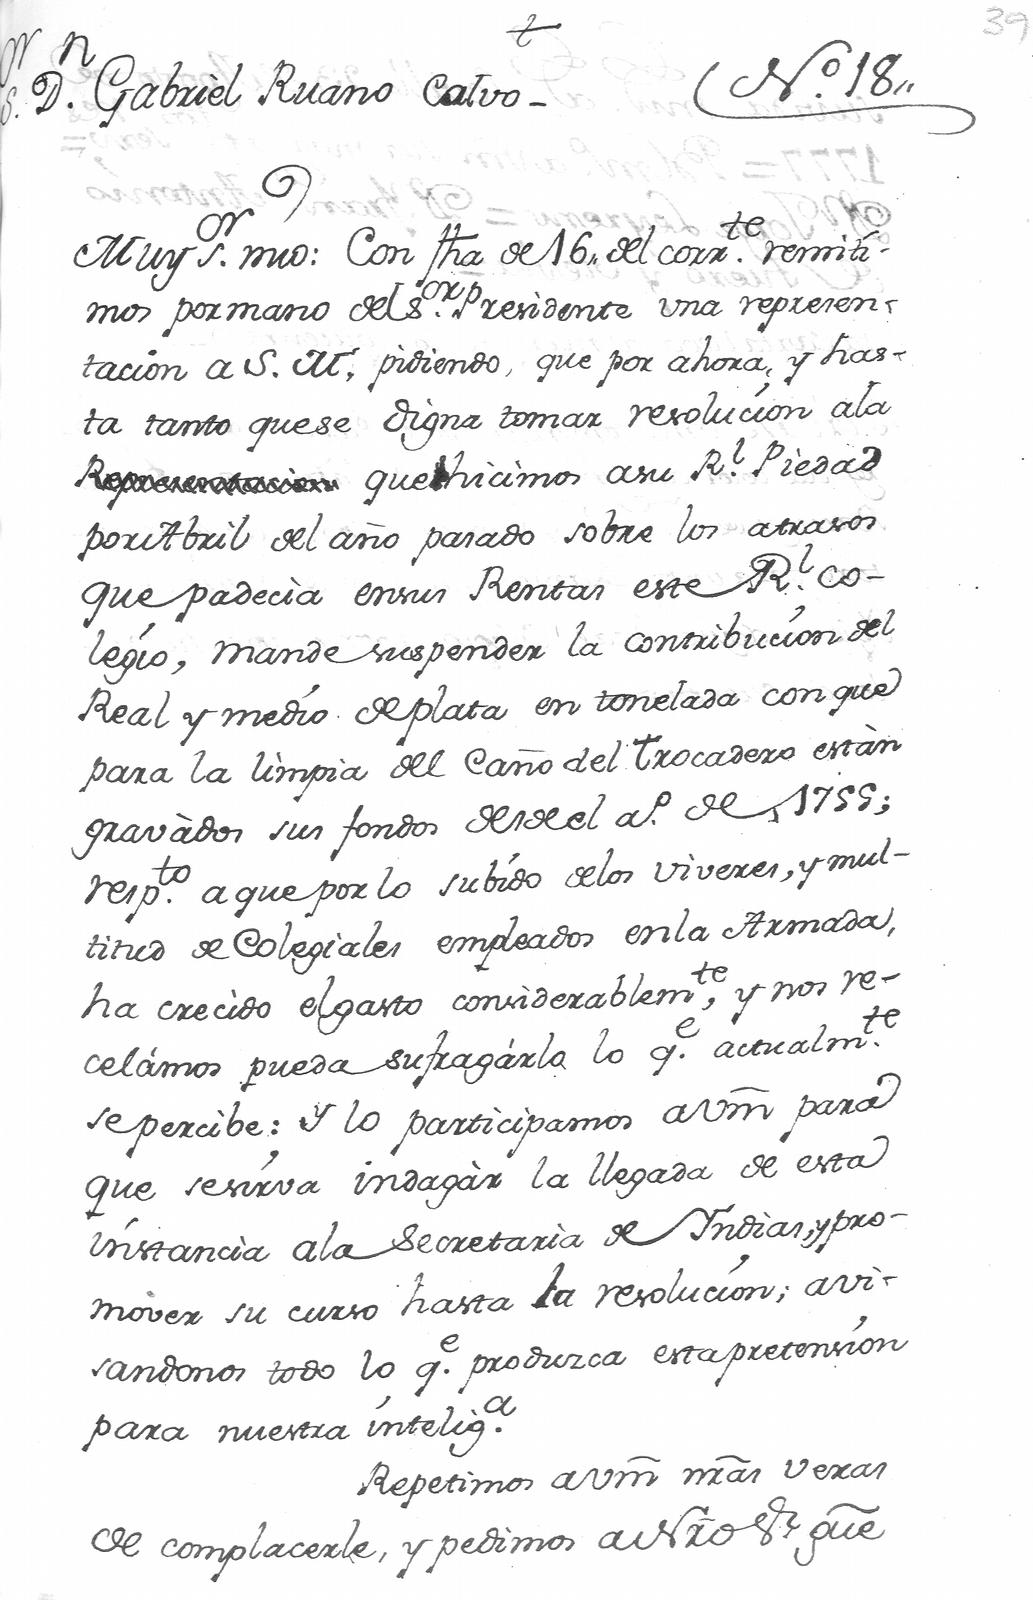 39
+
Sor. Dn. Gabriel Ruano Calvo-
No. 18,,
Muy Sor. mio: Con fha de 16,, del corrte. remiti-
mos por mano del Sor. Presidente una represen-
tacion a S. M., pidiendo, que por ahora, y has-
ta tanto quese digne tomar resolucion ala
Representacion que hicimos asu Rl. Piedad
por Abril del año pasado sobre los atrasos
que padecia ensus Rentas este Rl. Co-
legio, mande suspender la contribucion del
Real y medio de plata en tonelada con que
para la limpia del Caño del Trocadero estàn
gravàdos sus fondos desde el ao. de 1755;
respto. a que por lo subido delos viveres, y mul-
titud de Colegiales empleados enla Armada,
ha crecido el gasto considerablemte, y nos re-
celámos pueda sufragárlo lo qe. actualmte.
se percibe: y lo participamos a Vm̃ para
que se sirva indagàr la llegada de esta
instancia ala Secretaria de Yndias, y pro-
mover su curso hasta la resolucion; avi-
sandonos todo lo qe. produzca esta pretension
para nuestra inteliga.
Repetimos a Vm̃ nr̃as veras
de complacerle, y pedimos a Nr̃o Sr. gũe